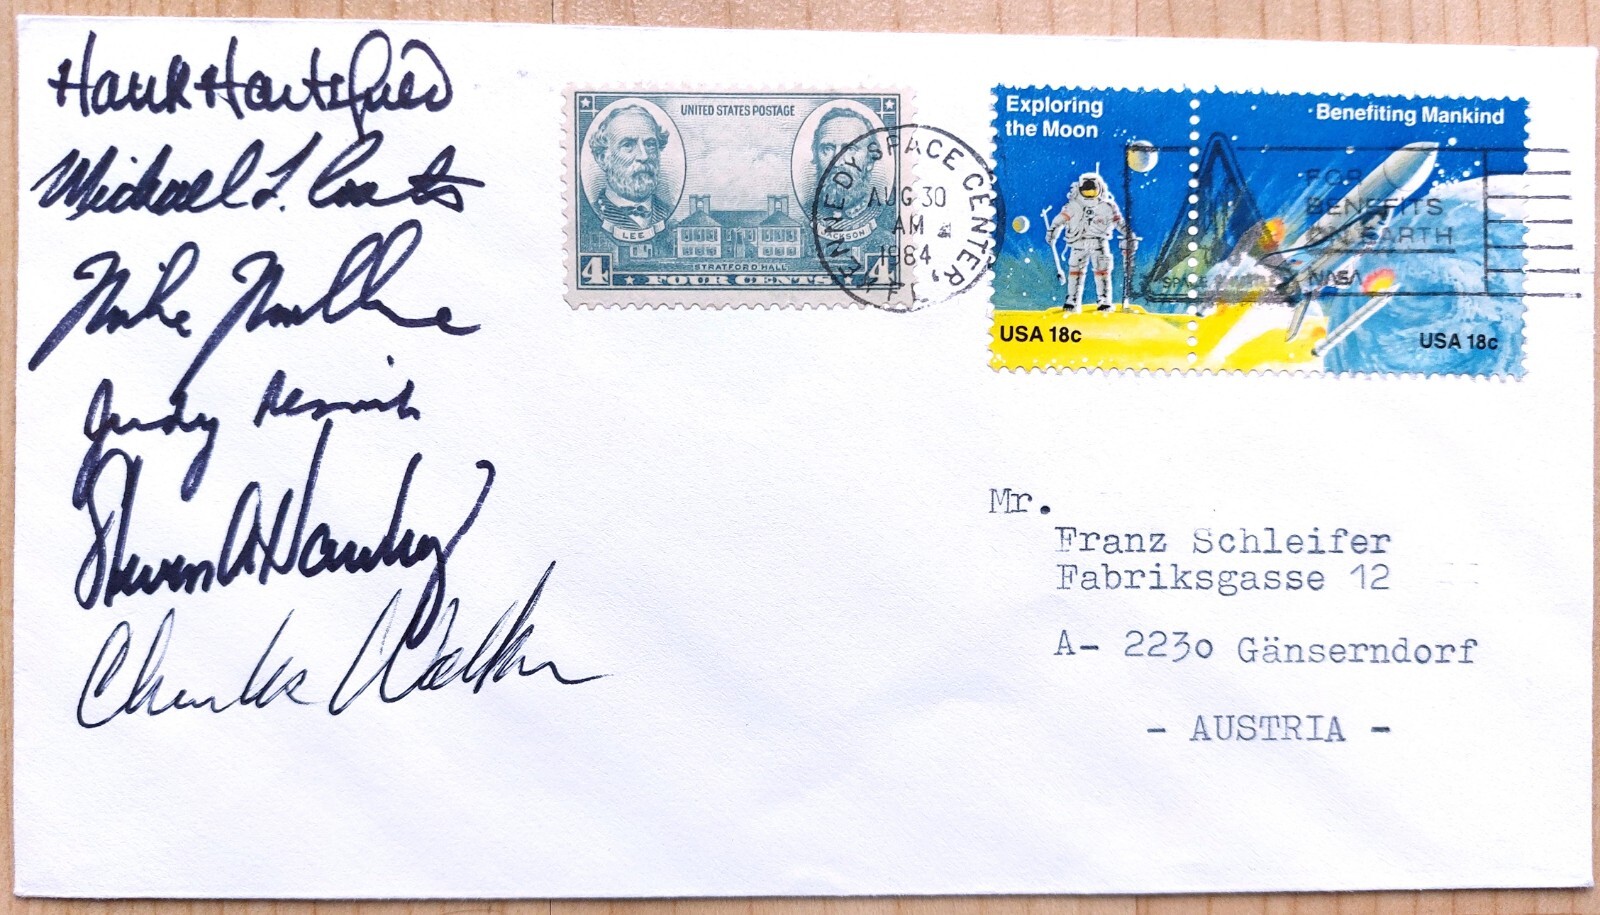 Hank Hartsfield
Michael L. Coats
Mike Mullane
Judy Resnik
Steven A Hawley
Charles Walker
UNITED STATES POSTAGE
LEE
JACKSON
STRATFORD HALL
4 FOUR CENTS 4
KENNEDY SPACE CENTER, FL
AUG 30
AM
1984
Exploring
the Moon
USA 18c
Benefiting Mankind
USA 18c
SPACE
FOR
BENEFITS
ON EARTH
NASA
Mr.
Franz Schleifer
Fabriksgasse 12
A- 2230 Gänserndorf
- AUSTRIA -